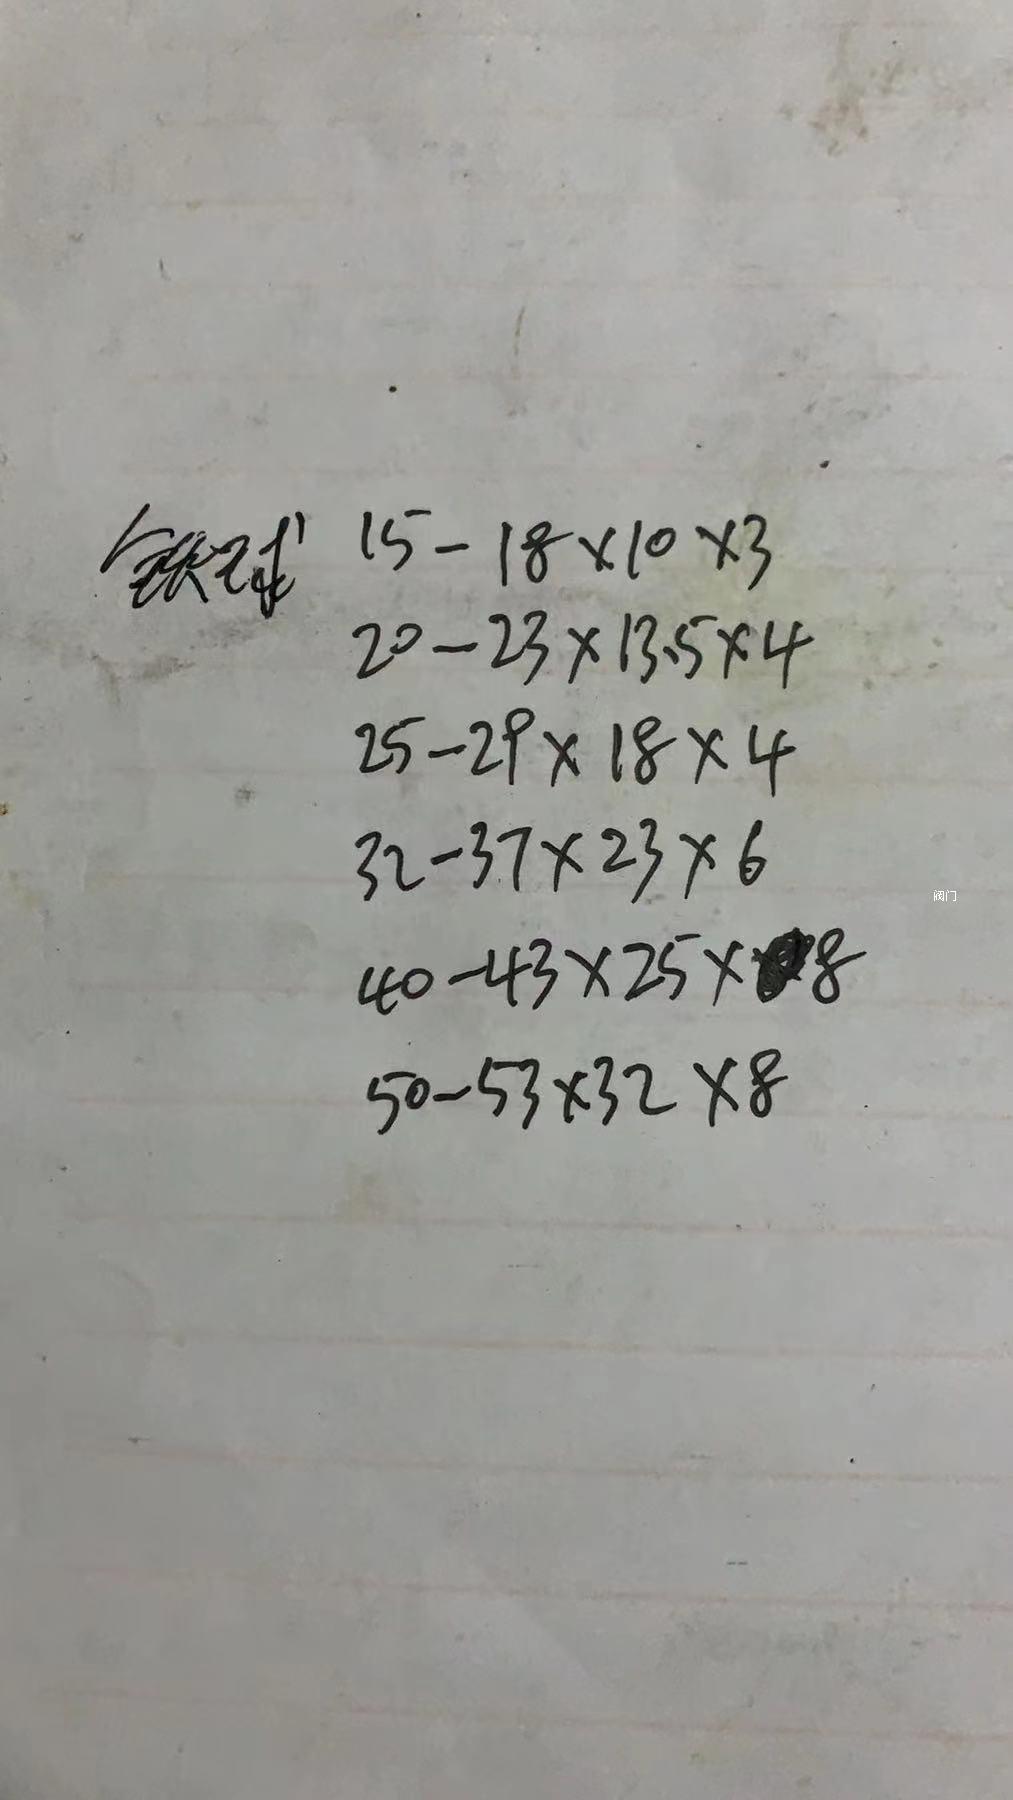 铁球 15-18×10×3
20-23×13.5×4
25-29×18×4
32-37×23×6
阀门
40-43×25×8
50-53×32×8